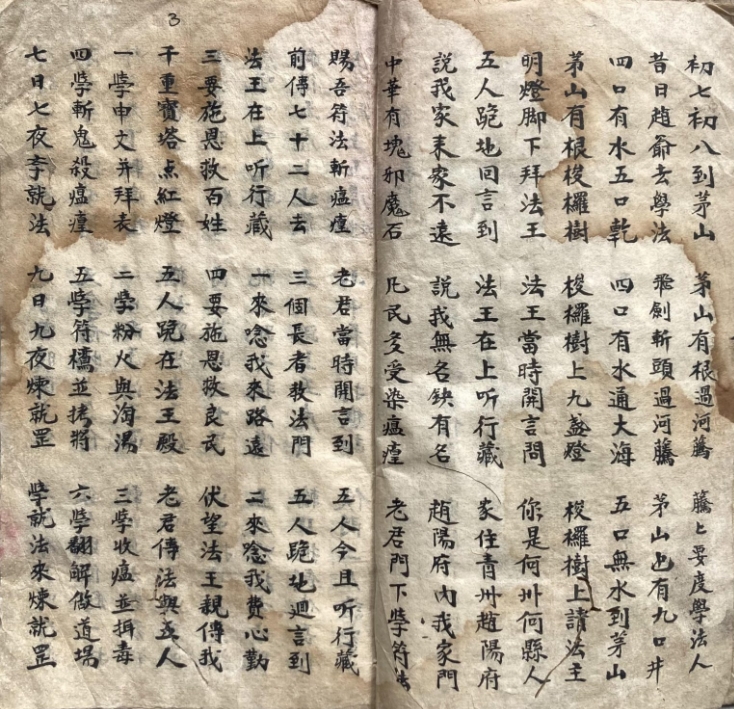 初七初八到茅山 茅山有根過河籐 籐〻要度學法人
昔日趙爺去學法 飛劍斬頭過河籐 茅山也有九口井
四口有水五口乾 四口有水通大海 五口無水到茅山
茅山有根梭欏樹 梭欏樹上九盞燈 梭欏樹上請法主
明燈脚下拜法王 法王當時開言問 你是何州何縣人
五人跪地回言到 法王在上听行藏 家住青州趙陽府
說我家来家不遠 說我無名缺有名 趙陽府內我家門
中華有塊邪魔石 凡民多受染瘟瘴 老君門下斈符法
賜吾符法斬瘟瘴 老君當時開言到 五人今且听行藏
前傳七十二人去 三個長者教法門 五人跪地迴言到
法王在上听行藏 一來唸我來路遠 二來唸我費心勤
三要施恩救百姓 四要施恩救良民 伏望法王親傳我
千重寶塔点紅燈 五人跪在法王殿 老君傳法與五人
一斈申文并拜表 二斈粉火與淘湯 三斈收瘟並揖毒
四斈斬鬼殺瘟瘴 五斈符橋並拷將 六斈翻解做道場
七日七夜斈就法 九日九夜煉就罡 斈就法來煉就罡
3